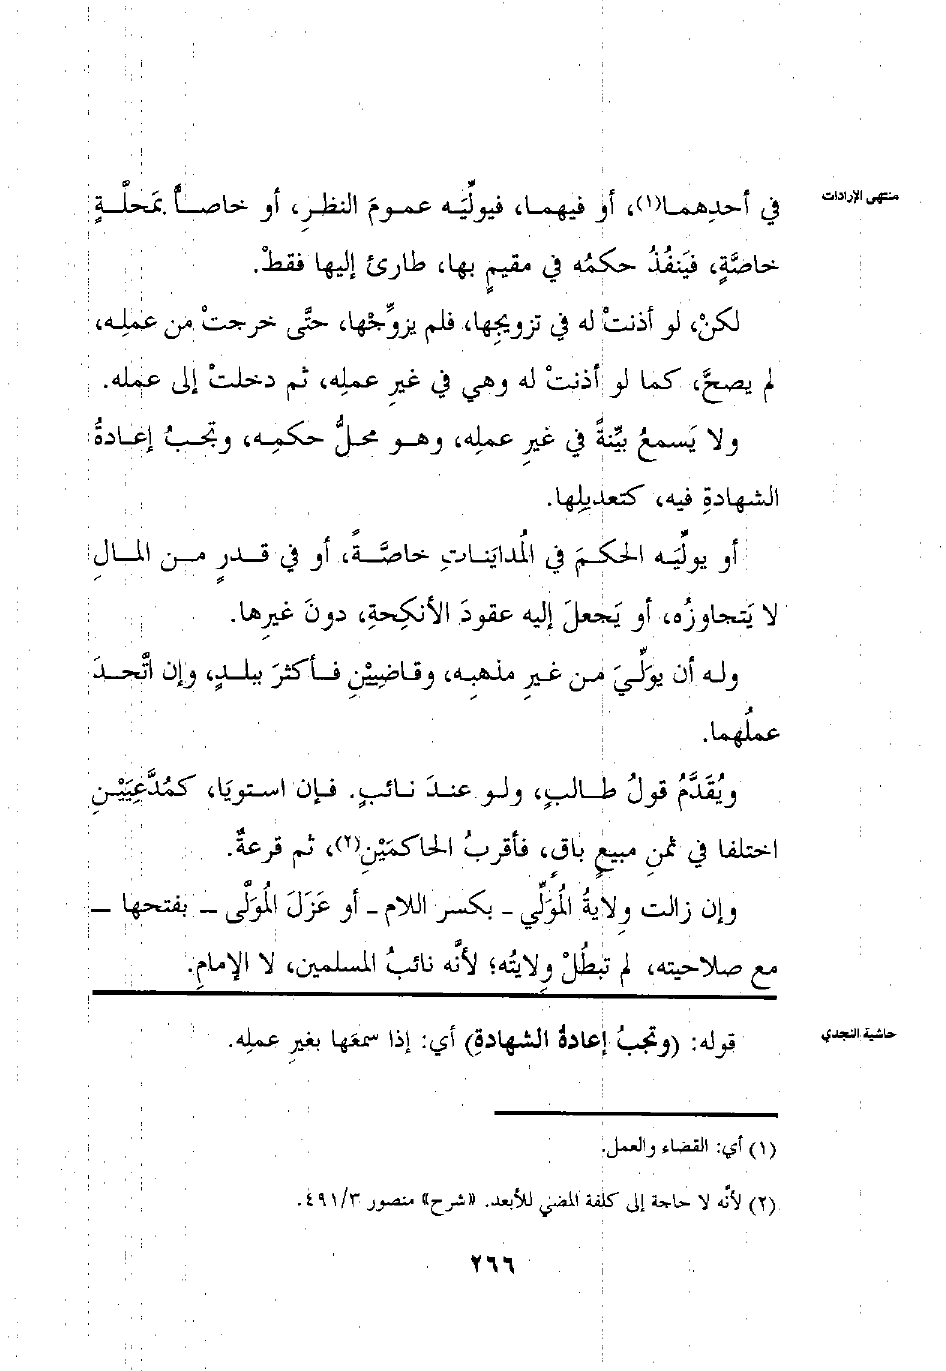 منتهى الإرادات
في أحدِهما(١)، أو فيهما، فيولِّيَه عمومَ النظرِ، أو خاصاً بمَحلَّةٍ
خاصَّةٍ، فيَنفُذُ حكمُه في مقيمٍ بها، طارئ إليها فقطْ.
لكنْ، لو أذنتْ له في تزويجِها، فلم يزوِّجْها، حتَّى خرجتْ من عملِه،
لم يصحَّ، كما لو أذنتْ له وهي في غيرِ عملِه، ثم دخلتْ إلى عمله.
ولا يَسمعُ بيِّنةً في غيرِ عملِه، وهو محلُّ حكمِه، وتجبُ إعادةُ
الشهادةِ فيه، كتعديلِها.
أو يولِّيَه الحكمَ في المُدايَناتِ خاصَّةً، أو في قدرٍ من المالِ
لا يَتجاوزُه، أو يَجعلَ إليه عقودَ الأنكِحةِ، دونَ غيرِها.
وله أن يولِّيَ من غيرِ مذهبِه، وقاضِيَيْنِ فأكثرَ ببلدٍ، وإن اتَّحدَ
عملُهما.
ويُقَدَّمُ قولُ طالبٍ، ولو عندَ نائبٍ. فإن استويَا، كمُدَّعِيَيْنِ
اختلفا في ثمنِ مبيعٍ باقٍ، فأقربُ الحاكمَيْنِ(٢)، ثم قرعةٌ.
وإن زالت ولايةُ المُوَلِّي - بكسر اللام - أو عَزَلَ المُوَلَّى - بفتحها -
مع صلاحيته، لم تبطُلْ وِلايتُه؛ لأنَّه نائبُ المسلمين، لا الإمامِ.
حاشية النجدي
قوله: (وتجبُ إعادةُ الشهادةِ) أي: إذا سمعَها بغيرِ عملِه.
(١) أي: القضاء والعمل.
(٢) لأنَّه لا حاجة إلى كلفة المضي للأبعد. «شرح» منصور ٤٩١/٣.
٢٦٦